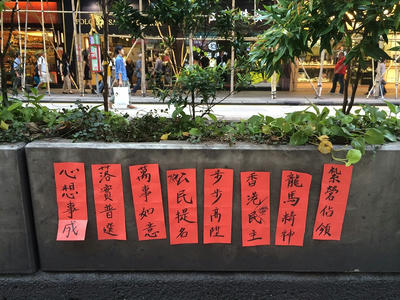 紮營佔領
龍馬精神
香港民主
步步高陞
公民提名
萬事如意
落實普選
心想事成